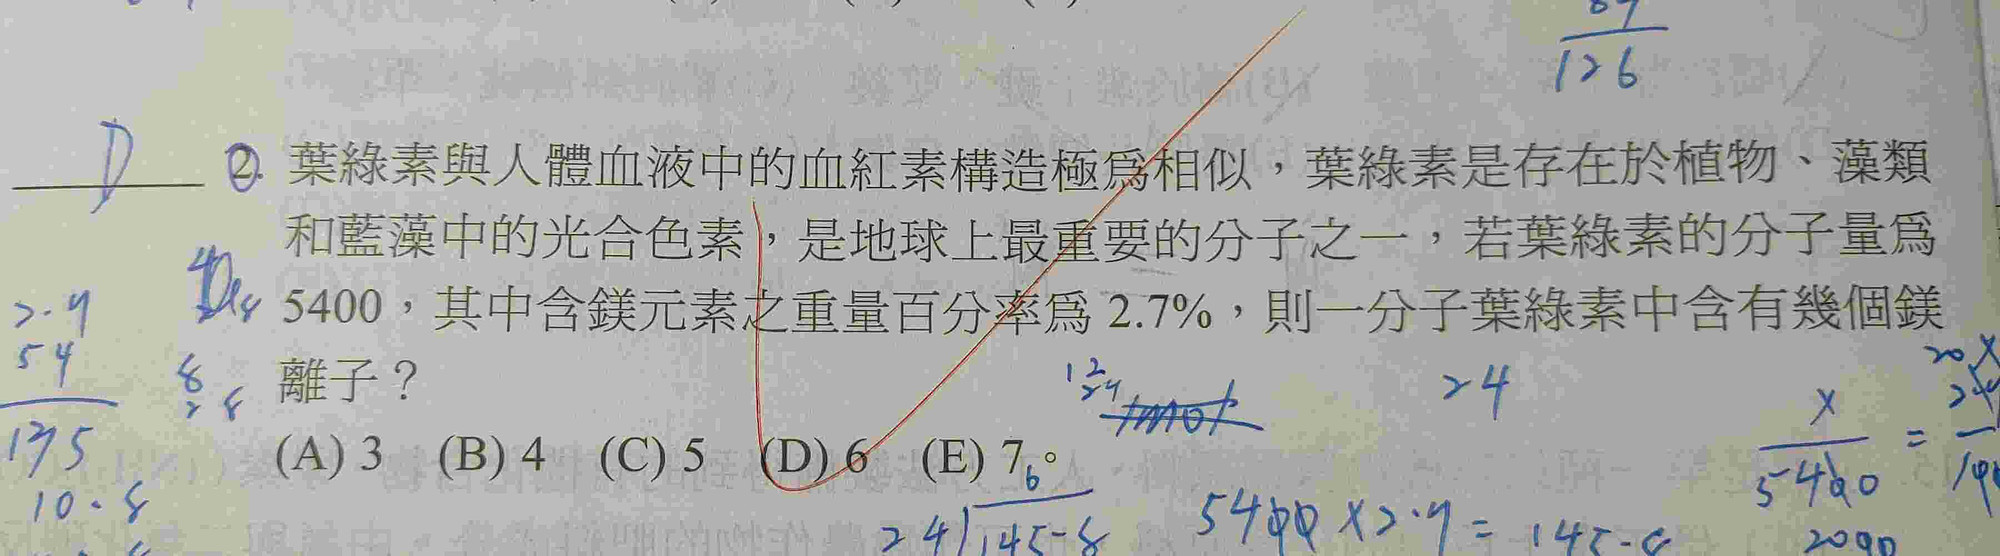 126
D 2. 葉綠素與人體血液中的血紅素構造極爲相似，葉綠素是存在於植物、藻類
和藍藻中的光合色素，是地球上最重要的分子之一，若葉綠素的分子量爲
5400，其中含鎂元素之重量百分率爲 2.7%，則一分子葉綠素中含有幾個鎂
離子？
(A) 3 (B) 4 (C) 5 (D) 6 (E) 7。
2.7
54
10.8
12
24
24
6
24 145.8
5400 × 2.7 = 145.8
x
5400